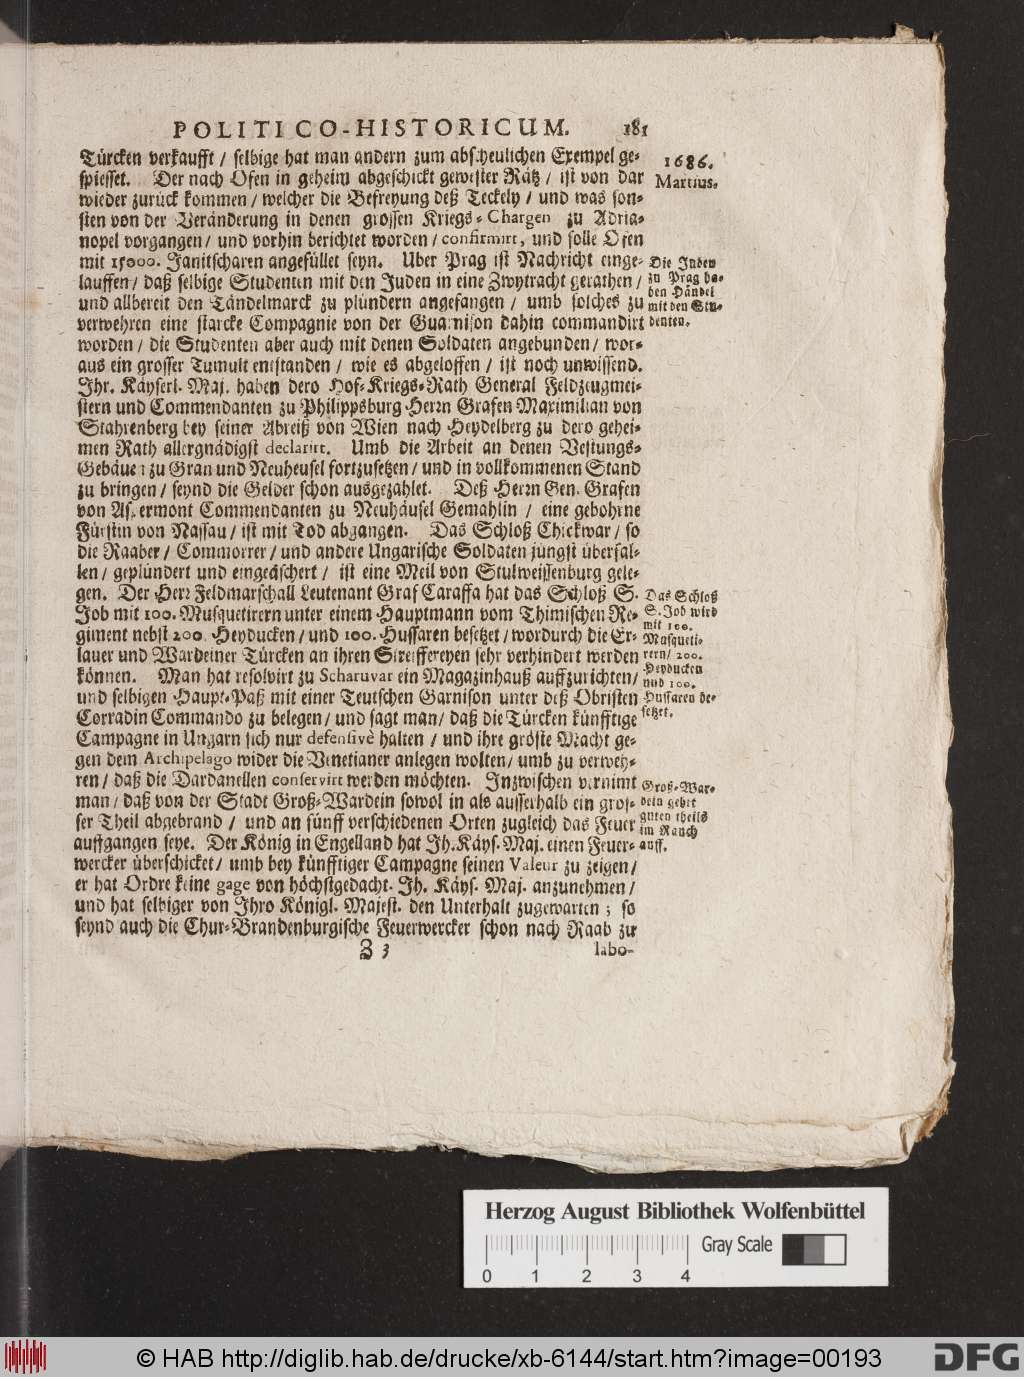 POLITICO-HISTORICUM. 181
Türcken verkaufft / selbige hat man andern zum abscheulichen Exempel ge-
spiesset. Der nach Ofen in geheim abgeschickt gewester Rätz / ist von dar
wieder zurück kommen / welcher die Befreyung deß Teckely / und was son-
sten von der Veränderung in denen grossen Kriegs-Chargen zu Adria-
nopel vorgangen / und vorhin berichtet worden / confirmirt, und solle Ofen
mit 15000. Janitscharen angefüllet seyn. Uber Prag ist Nachricht einge-
lauffen / daß selbige Studenten mit den Juden in eine Zwytracht gerathen /
und allbereit den Tändelmarck zu plündern angefangen / umb solches zu
verwehren eine starcke Compagnie von der Guarnison dahin commandirt
worden / die Studenten aber auch mit denen Soldaten angebunden / wor-
aus ein grosser Tumult entstanden / wie es abgeloffen / ist noch unwissend.
Ihr. Käyserl. Maj. haben dero Hof-Kriegs-Rath General Feldzeugmei-
stern und Commendanten zu Philippsburg Herrn Grafen Maximilian von
Stahrenberg bey seiner Abreiß von Wien nach Heydelberg zu dero gehei-
men Rath allergnädigst declarirt. Umb die Arbeit an denen Vestungs-
Gebäuen zu Gran und Neuheusel fortzusetzen / und in vollkommenen Stand
zu bringen / seynd die Gelder schon ausgezahlet. Deß Herrn Gen. Grafen
von Aspermont Commendanten zu Neuhäusel Gemahlin / eine gebohrne
Fürstin von Nassau / ist mit Tod abgangen. Das Schloß Chickwar / so
die Raaber / Commorrer / und andere Ungarische Soldaten jüngst überfal-
len / geplündert und eingeäschert / ist eine Meil von Stulweissenburg gele-
gen. Der Herr Feldmarschall Leutenant Graf Caraffa hat das Schloß S.
Job mit 100. Musquetirern unter einem Hauptmann vom Thimischen Re-
giment nebst 200. Heyducken / und 100. Hussaren besetzet / wordurch die Er-
lauer und Wardeiner Türcken an ihren Streiffereyen sehr verhindert werden
können. Man hat resolvirt zu Scharuvar ein Magazinhauß auffzurichten /
und selbigen Haupt-Paß mit einer Teutschen Garnison unter deß Obristen
Corradin Commando zu belegen / und sagt man / daß die Türcken künfftige
Campagne in Ungarn sich nur defensivè halten / und ihre gröste Macht ge-
gen dem Archipelago wider die Venetianer anlegen wolten / umb zu verweh-
ren / daß die Dardanellen conservirt werden möchten. Inzwischen vernimt
man / daß von der Stadt Groß-Wardein sowol in als ausserhalb ein gros-
ser Theil abgebrand / und an fünff verschiedenen Orten zugleich das Feuer
auffgangen seye. Der König in Engelland hat Ih. Käys. Maj. einen Feuer-
wercker überschicket / umb bey künfftiger Campagne seinen Valeur zu zeigen /
er hat Ordre keine gage von höchstgedacht. Ih. Käys. Maj. anzunehmen /
und hat selbiger von Ihro Königl. Majest. den Unterhalt zugewarten ; so
seynd auch die Chur-Brandenburgische Feuerwercker schon nach Raab zu
Z 3 labo-
1686.
Martius.
Die Juden
zu Prag ha-
ben Händel
mit den Stu-
denten.
Das Schloß
S. Job wird
mit 100.
Musqueti-
rern / 200.
Heyducken
und 100.
Hussaren be-
setzet.
Groß-War-
dein gehet
guten theils
im Rauch
auff.
Herzog August Bibliothek Wolfenbüttel
Gray Scale
0 1 2 3 4
© HAB http://diglib.hab.de/drucke/xb-6144/start.htm?image=00193
DFG